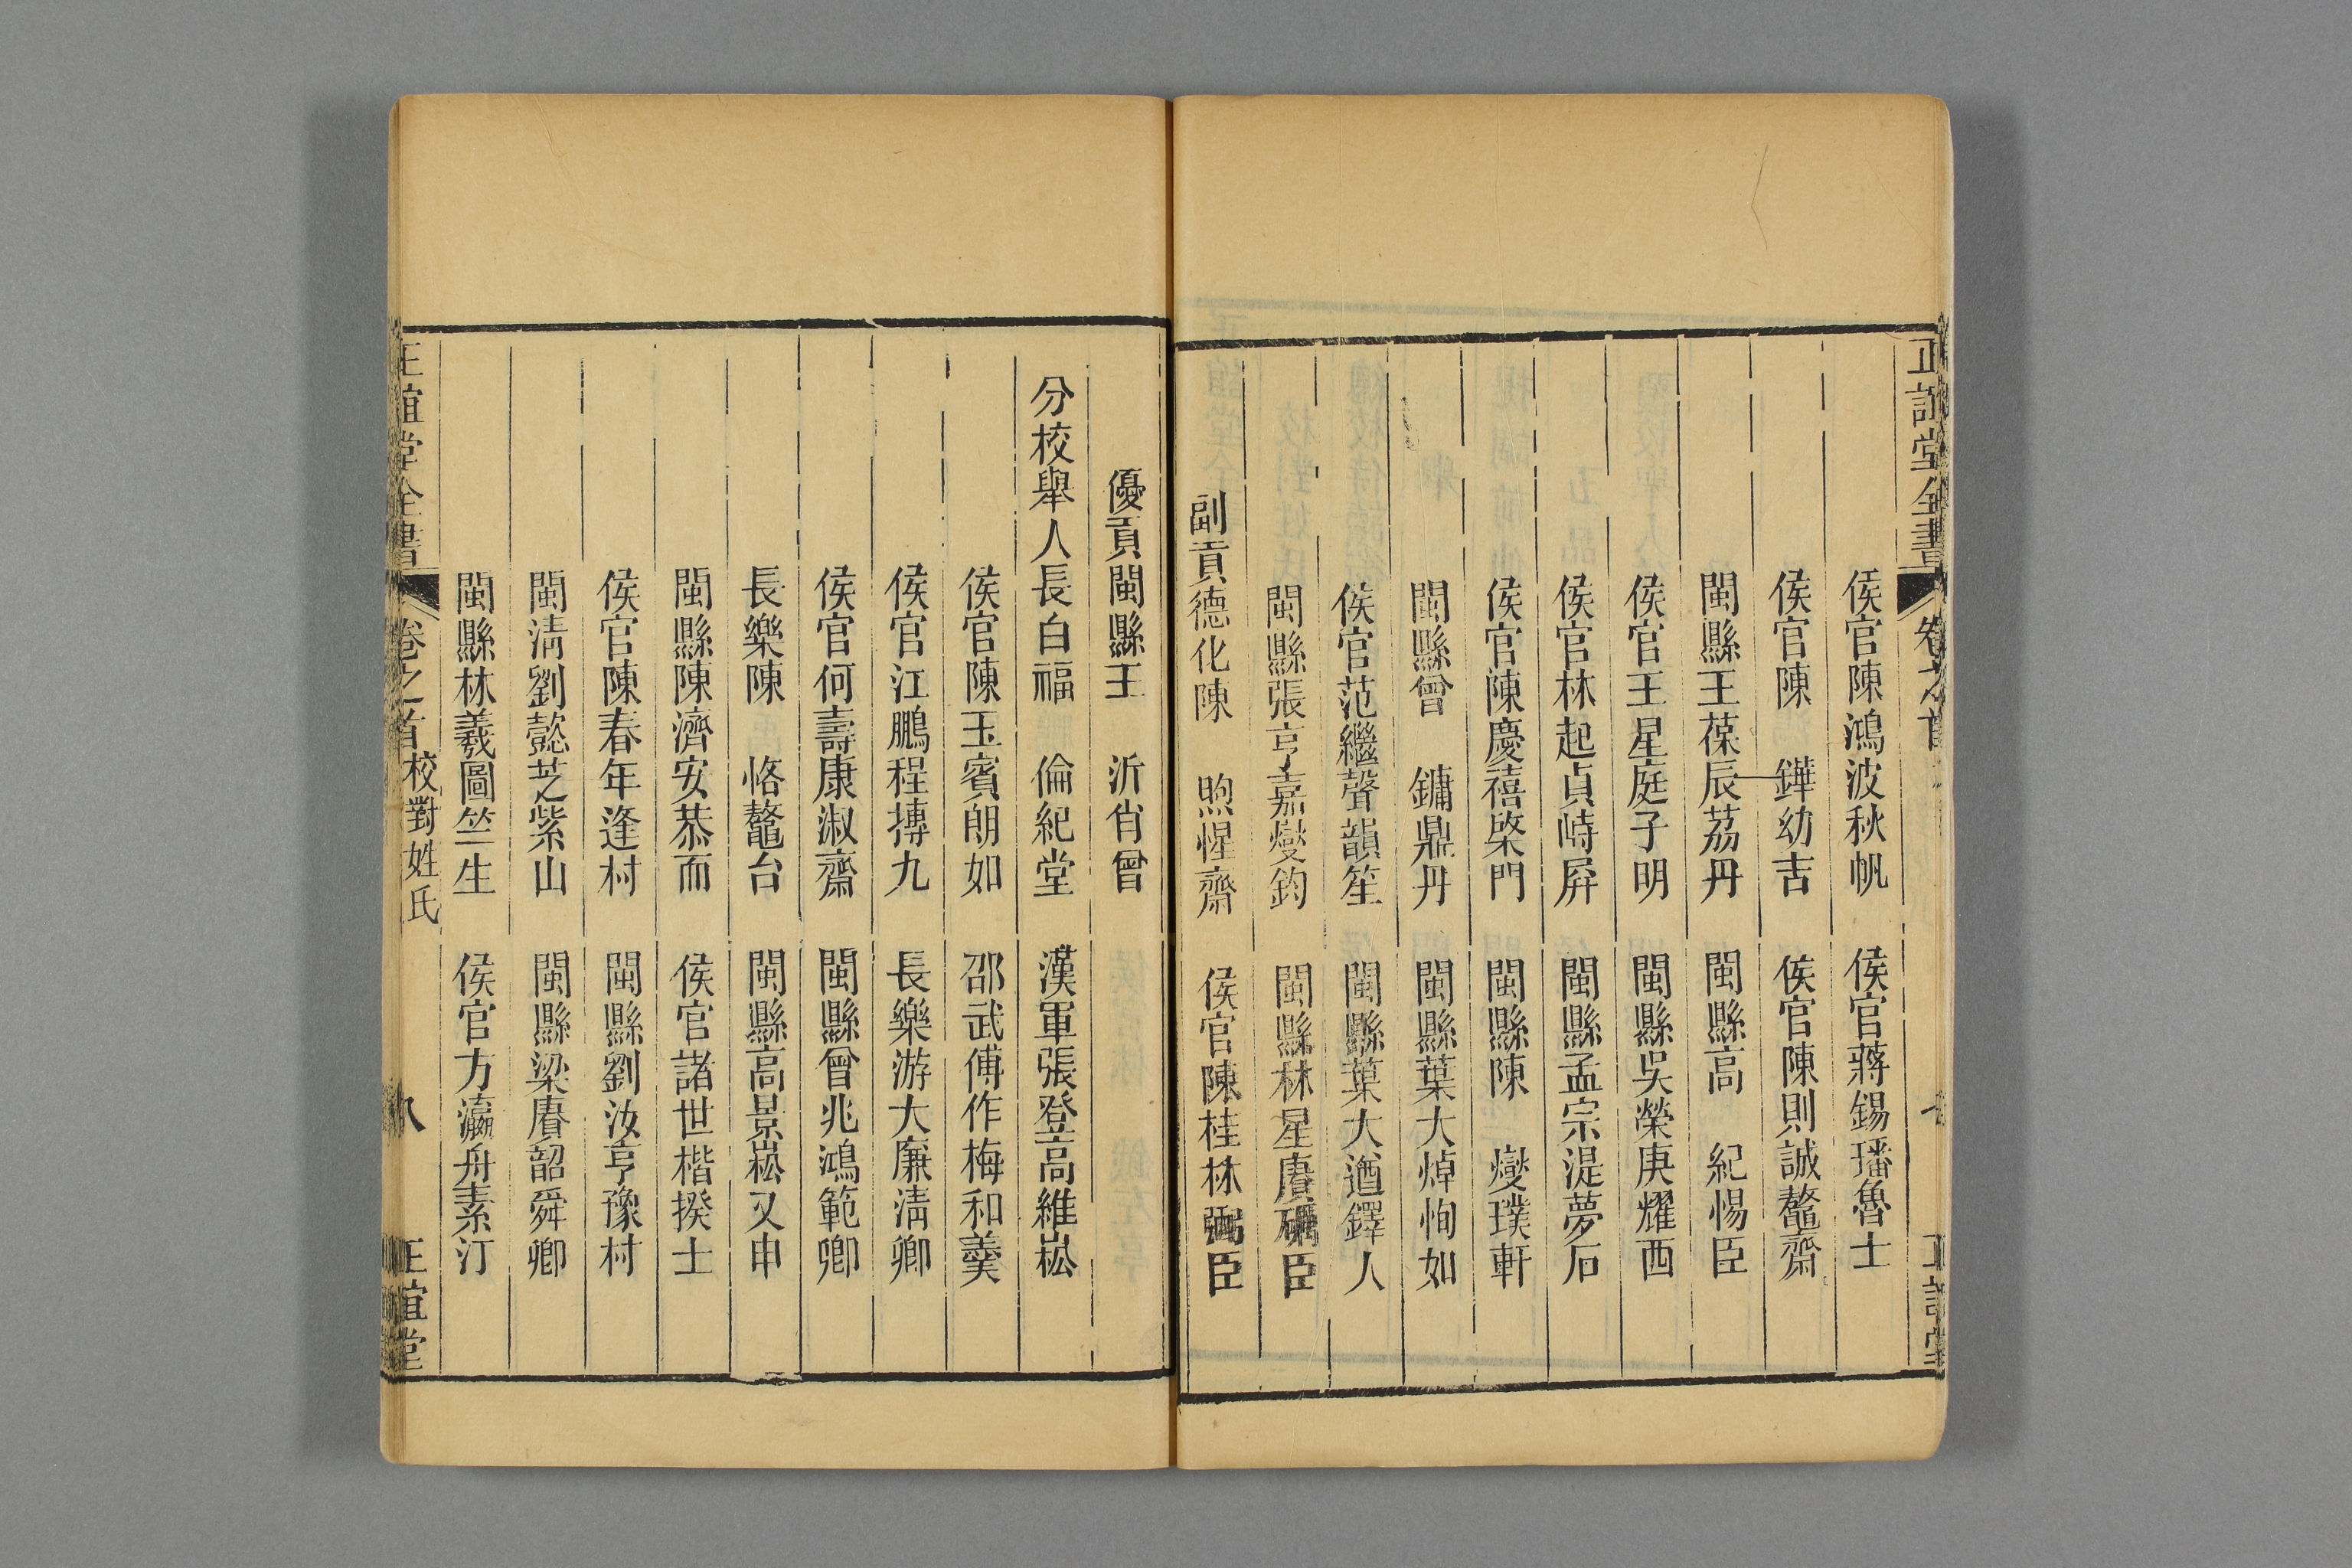 正誼堂全書 卷之首 七 正誼堂
侯官陳鴻波秋帆 侯官蔣錫璠魯士
侯官陳 鏵幼吉 侯官陳則誠鼇齋
閩縣王葆辰荔丹 閩縣高 紀惕臣
侯官王星庭子明 閩縣吳榮庚耀西
侯官林起貞峙屏 閩縣孟宗湜夢石
侯官陳慶禧棨門 閩縣陳 燮璞軒
閩縣曾 鏞鼎丹 閩縣葉大焯恂如
侯官范繼聲韻笙 閩縣葉大遒鐸人
閩縣張亨嘉燮鈞 閩縣林星賡臣
副貢德化陳 煦惺齋 侯官陳桂林弼臣
優貢閩縣王 沂肖曾
分校舉人長白福 倫紀堂 漢軍張登高維崧
侯官陳玉賓朗如 邵武傅作梅和羹
侯官江鵬程摶九 長樂游大廉清卿
侯官何壽康淑齋 閩縣曾兆鴻範卿
長樂陳 恪鼇台 閩縣高景崧又申
閩縣陳濟安恭而 侯官諸世楷揆士
侯官陳春年逢村 閩縣劉汝亨豫村
閩清劉懿芝紫山 閩縣梁賡韶舜卿
閩縣林羲圖竺生 侯官方瀛舟素汀
正誼堂全書 卷之首 校對姓氏 八 正誼堂